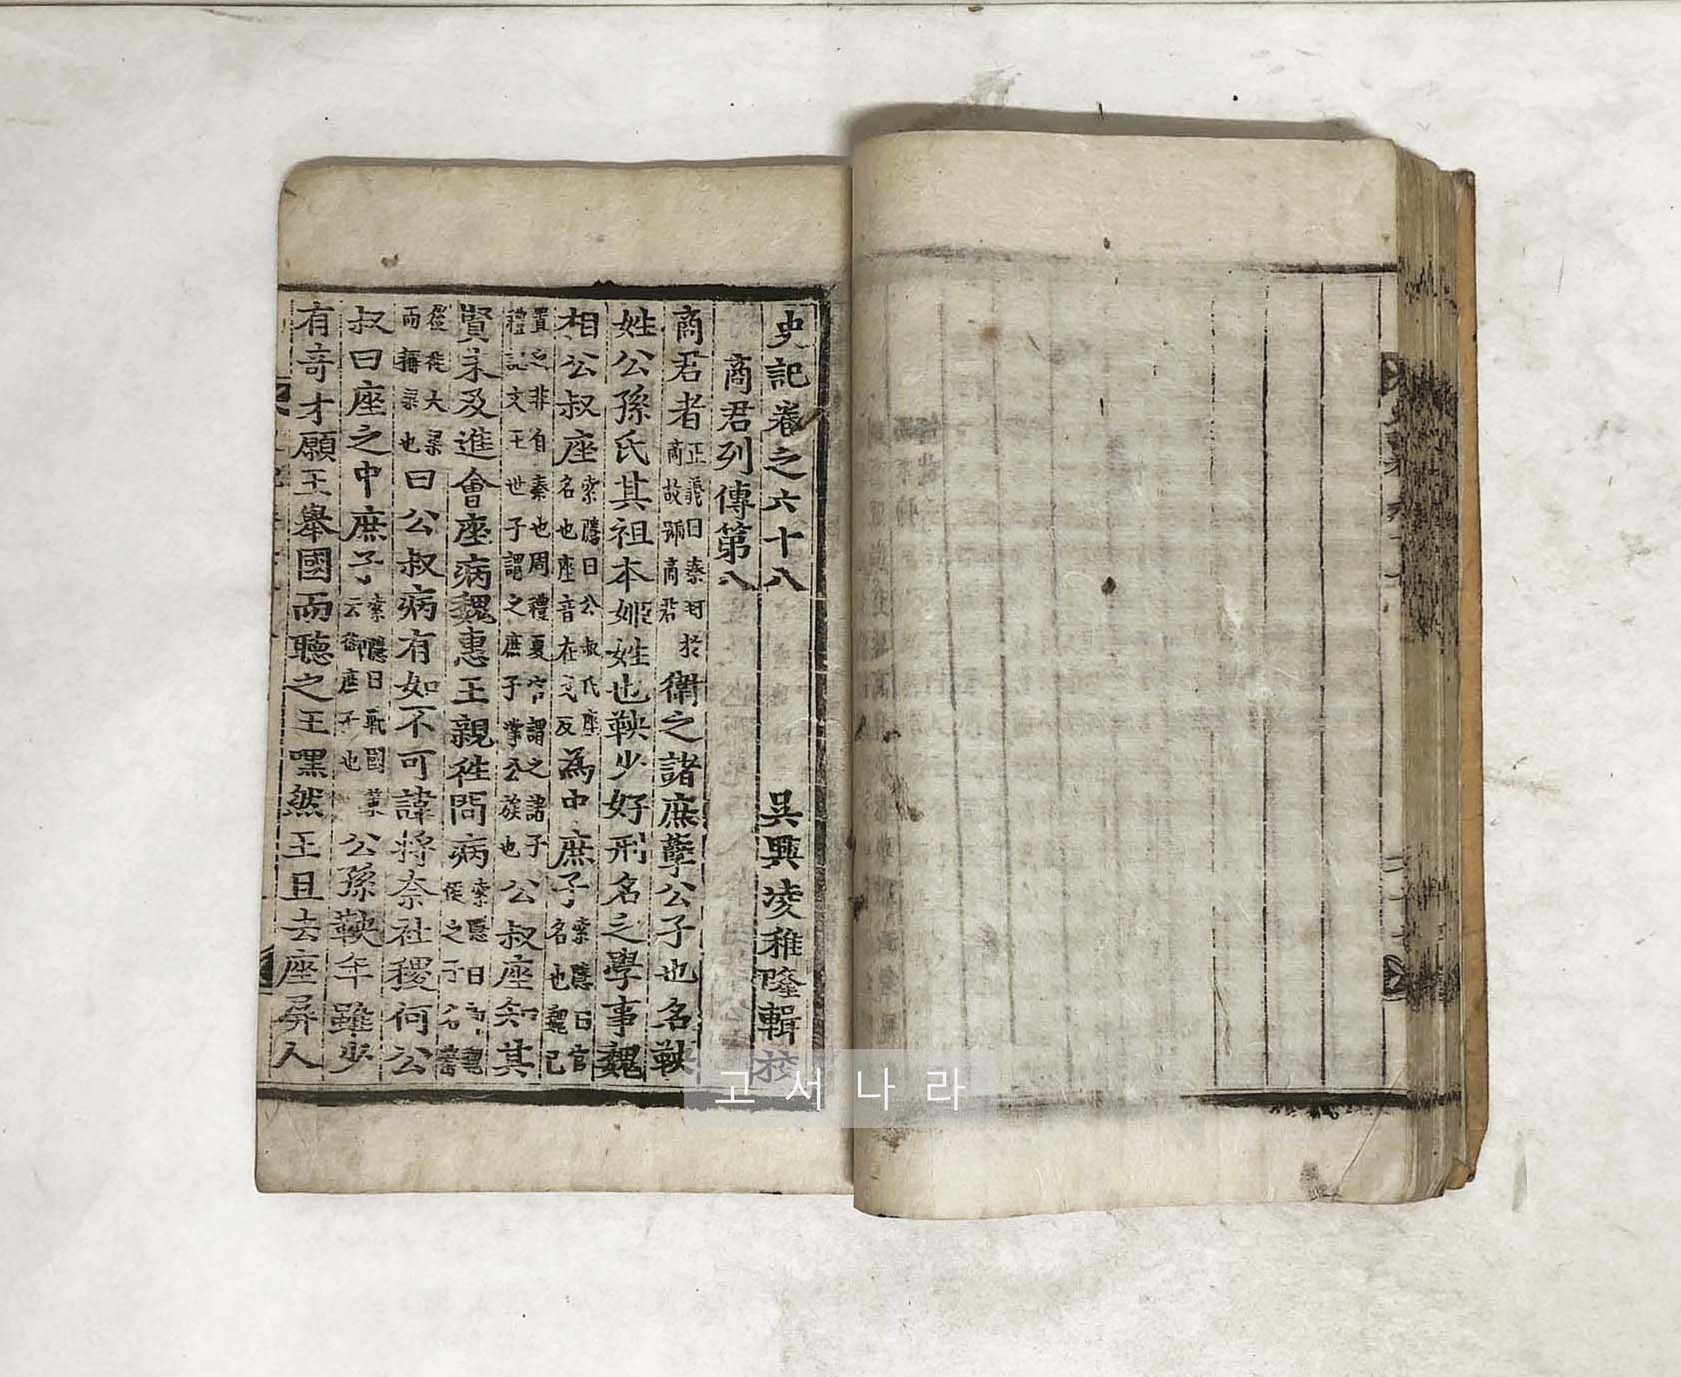 史記卷之六十八 吳興凌稚隆輯校
商君列傳第八
商君者正義曰秦封於商故號商君衛之諸庶孽公子也名鞅
姓公孫氏其祖本姬姓也鞅少好刑名之學事魏
相公叔座索隱曰公叔氏座名也座音在戈反為中庶子索隱曰官名也魏已
置之非自秦也周禮夏官謂之諸子禮記文王世子謂之庶子掌公族也公叔座知其
賢未及進會座病魏惠王親往問病索隱曰魏侯之子名罃
後徙大梁而稱梁也曰公叔病有如不可諱將奈社稷何公
叔曰座之中庶子索隱曰戰國策云衛庶子也公孫鞅年雖少
有奇才願王舉國而聽之王嘿然王且去座屏人
고서나라